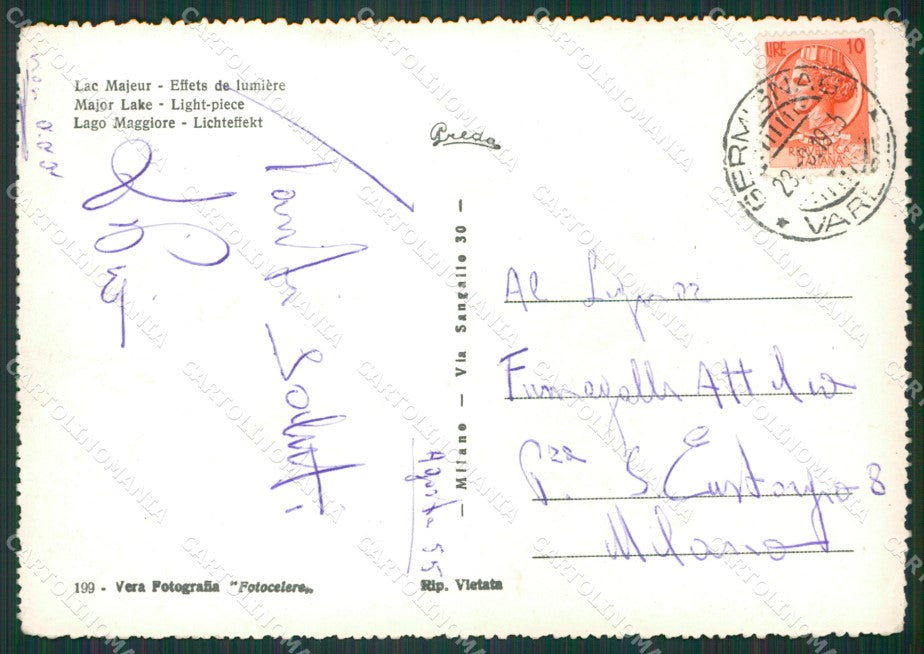 Lac Majeur - Effets de lumière
Major Lake - Light-piece
Lago Maggiore - Lichteffekt
Preda
LIRE 10
REPUBBLICA
ITALIANA
GERMIGNAGA
VARESE
Tanti Saluti
Agosto 55
- Milano - Via Sangallo 30 -
Al
Fumagalli Attilio
P.za S. Eustorgio 8
Milano
199 - Vera Fotografia "Fotocelere„
Rip. Vietata
CARTOLINOMANIA